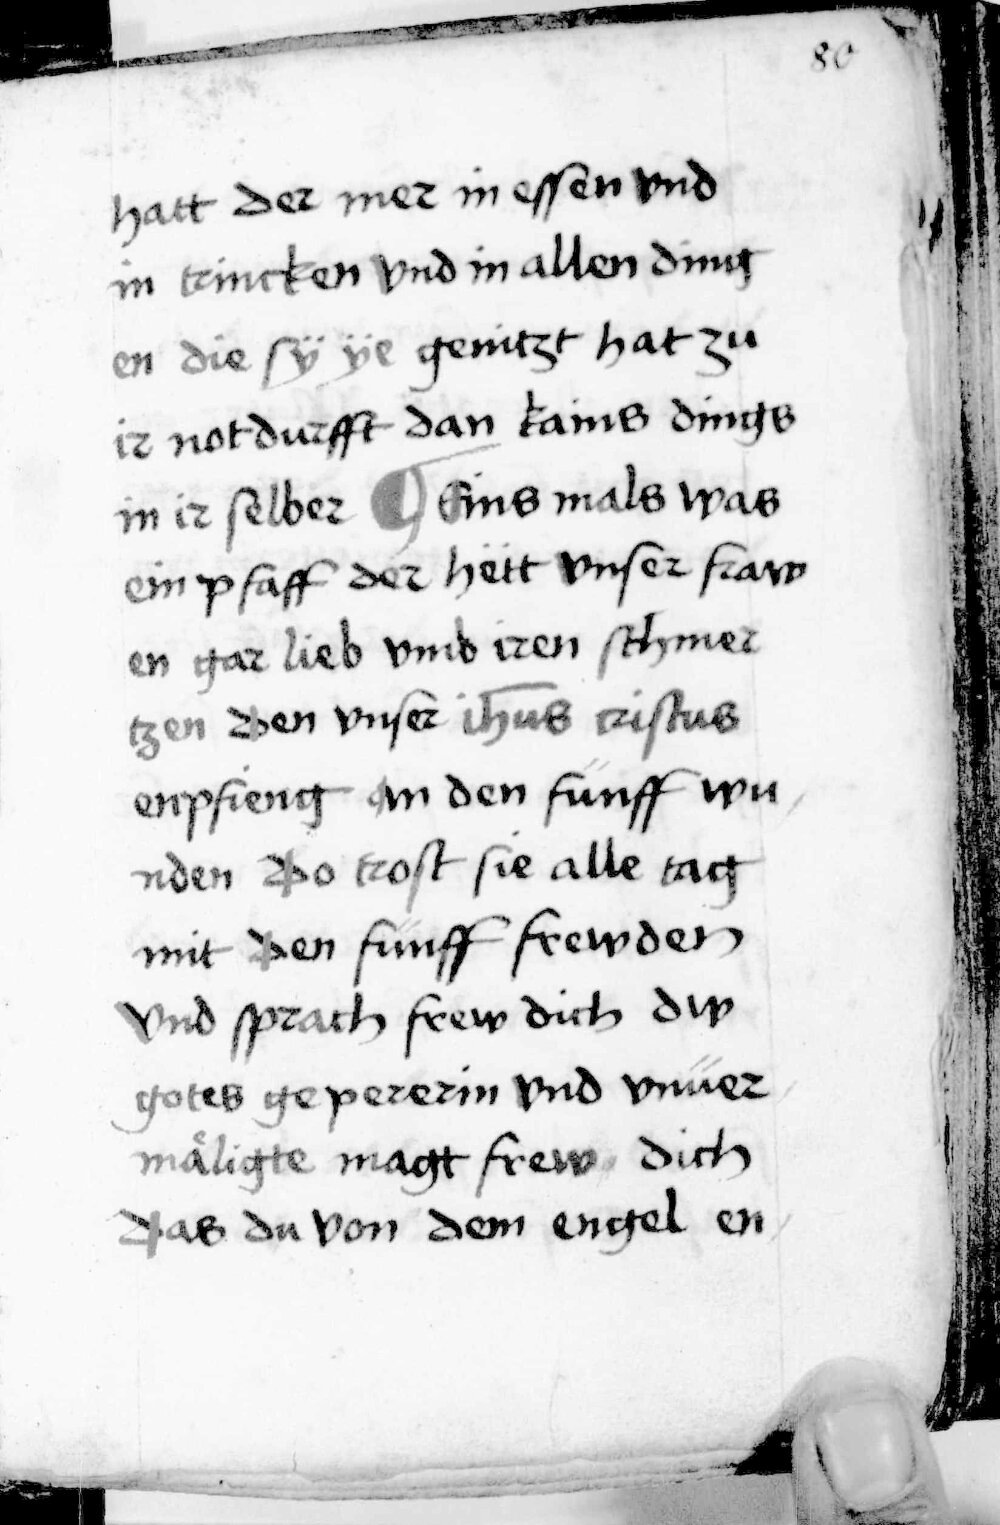 80
hatt der mer in essen vnd
in trincken vnd in allen ding
en die sÿ ÿe genitzt hat zu
ir notdurfft dan kains dings
in ir selber ¶ Eins mals was
ein pfaff der hett vnser fraw
en gar lieb vmb iren schmer
tzen den vnser ih̅us cristus
enpfieng an den fünff wu
nden Do trost sie alle tag
mit den fünff frewden
Vnd sprach frew dich dw
gotes gepererin vnd vnüer
måligte magt frew dich
Das du von dem engel en